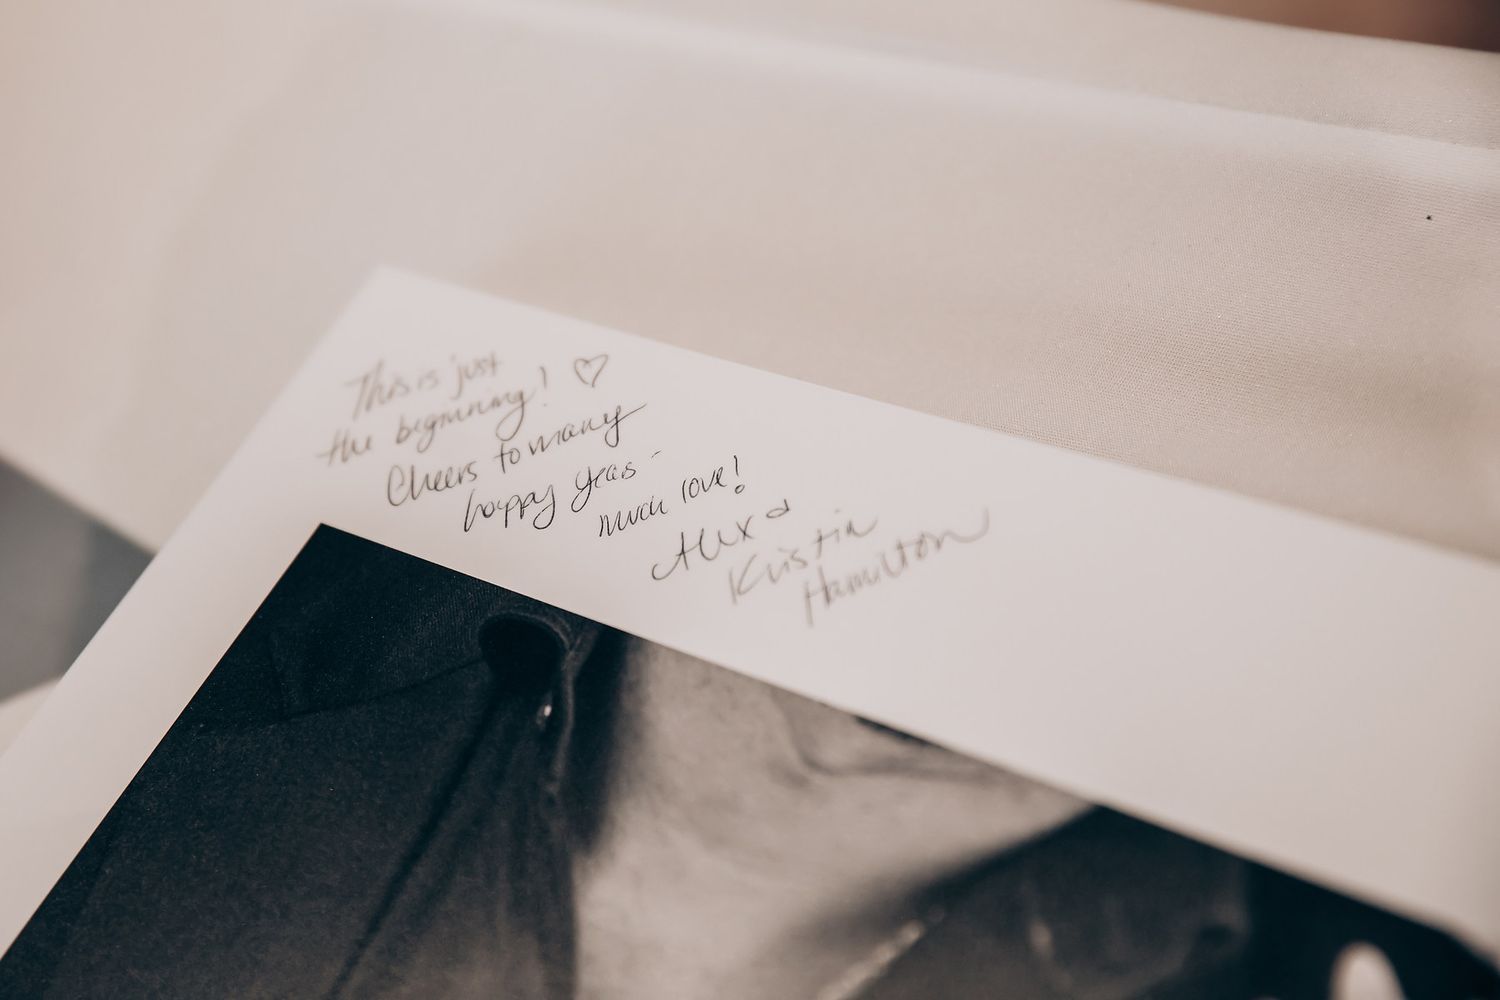 This is just
the beginning! ♡
Cheers to many
happy years -
much love!
Alex &
Kristin
Hamilton